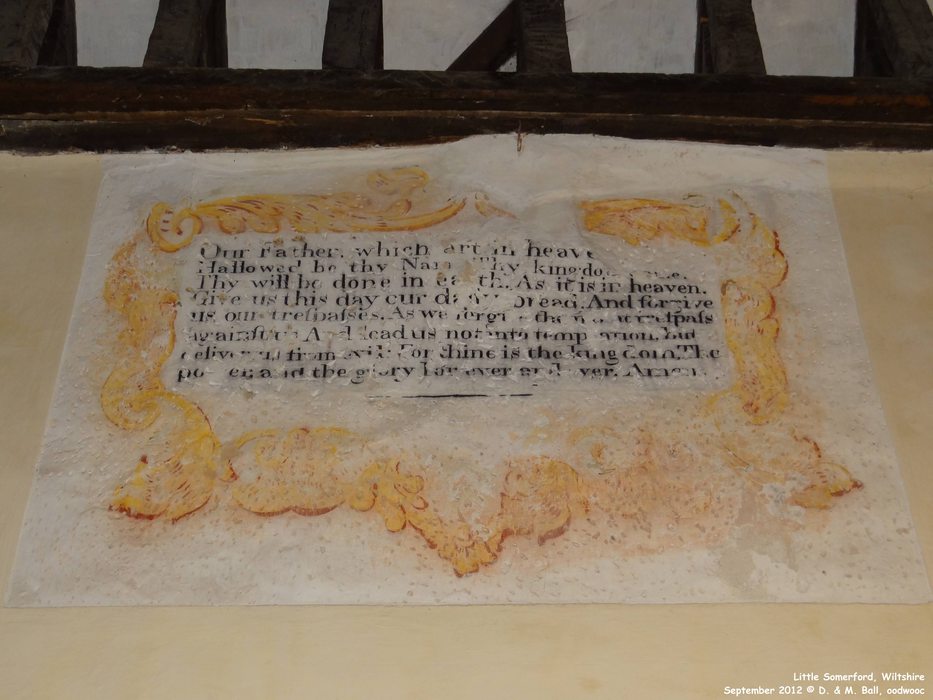 Our Father, which art in heave
Hallowed be thy Nam Thy kingdo
Thy will be done in earth. As it is in heaven.
Give us this day our daily bread. And forgive
us our trespasses. As we forgive them trespass
against us And lead us not into temptation, but
deliver us from evil: For thine is the kingdom. The
power and the glory For ever and ever. Amen.
Little Somerford, Wiltshire
September 2012 © D. & M. Ball, oodwooc